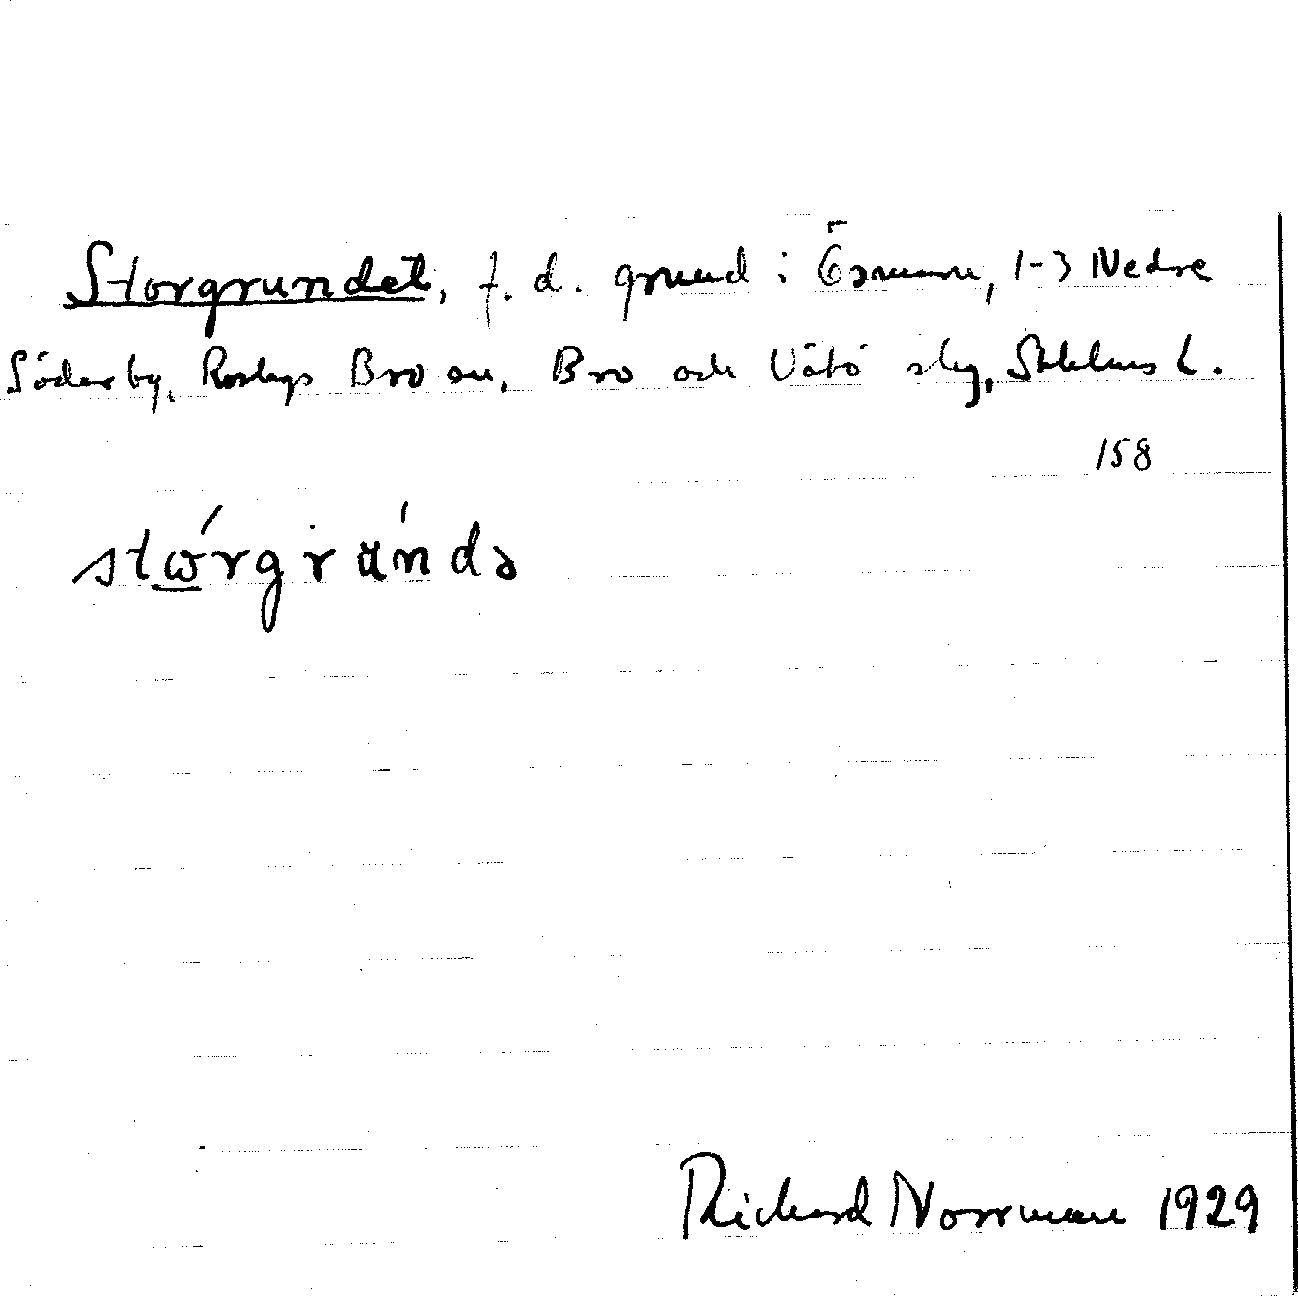 Storgrundet, f. d. grund i Ösmaren, 1-3 Nedre
Söderby, Roslags Bro sn, Bro och Vätö slg, Stockholms L.
158
stωrgrund
Richard Norrman 1929